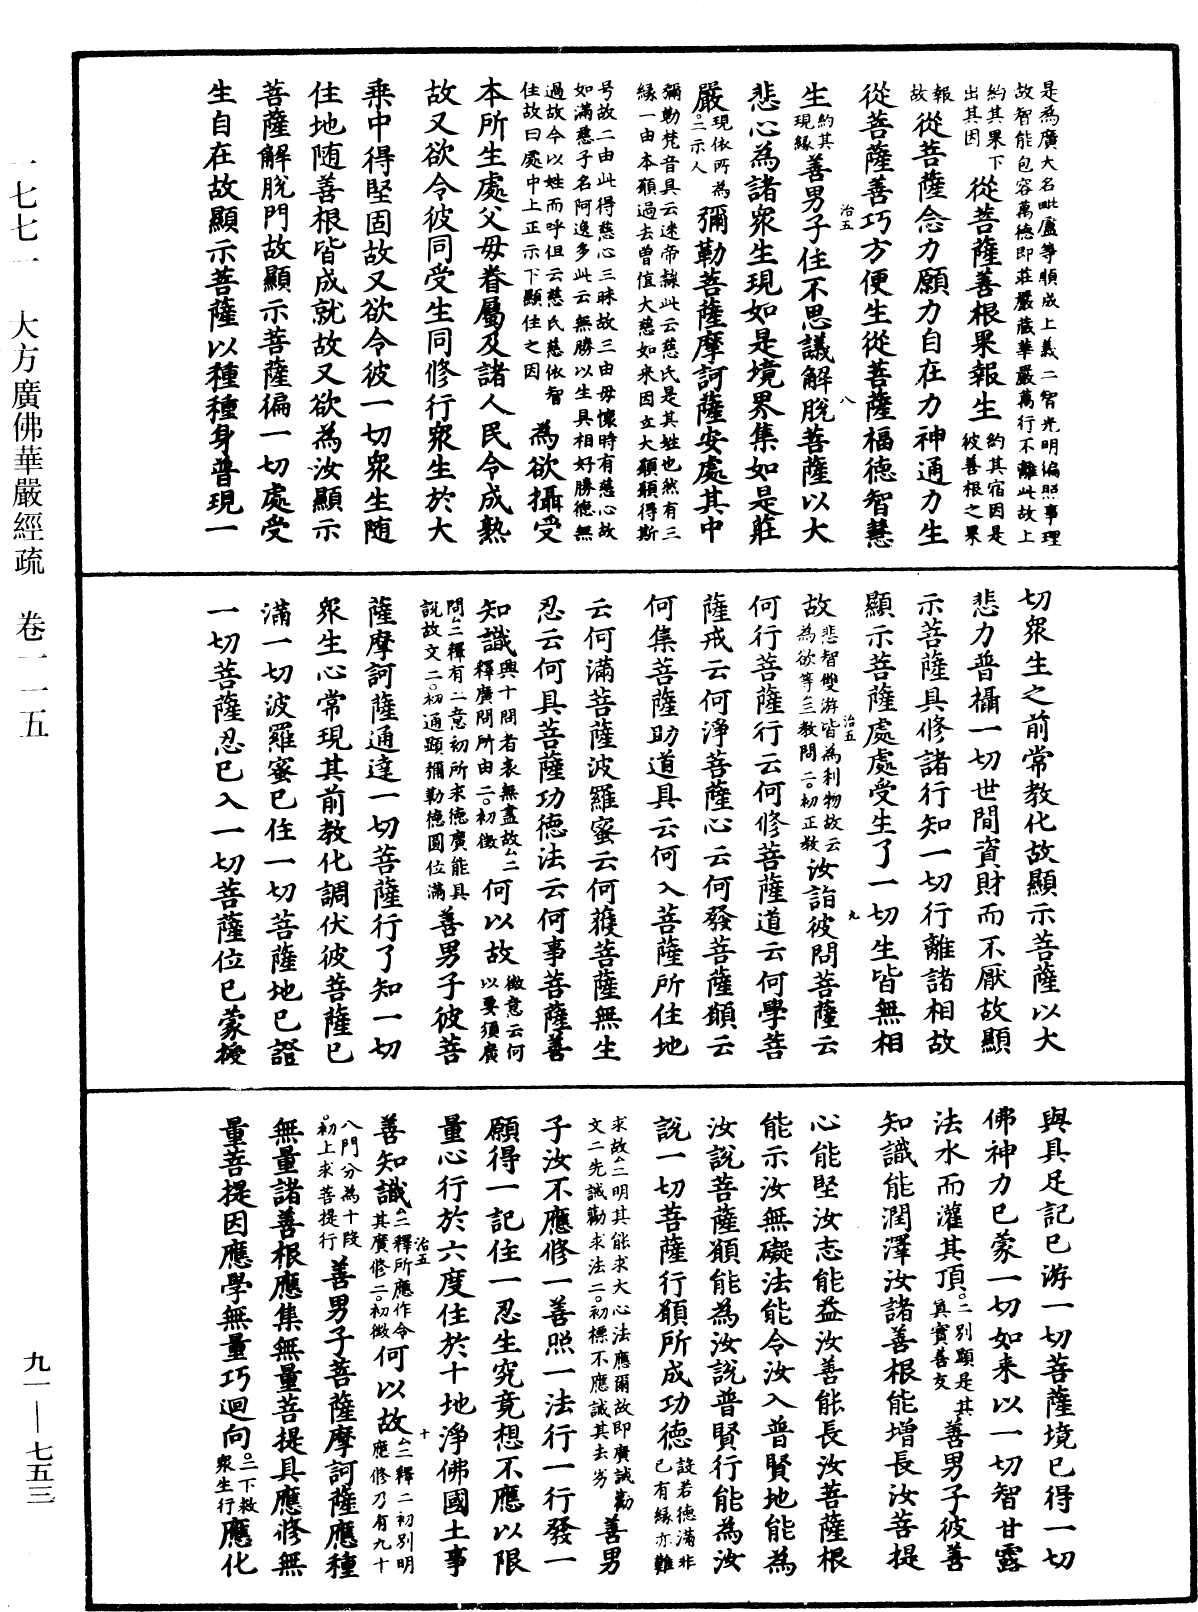 一七七一 大方廣佛華嚴經疏 卷一一五 九一—七五三
是為廣大名毗盧等順成上義二智光明徧照事理
故智能包容萬德即莊嚴藏華嚴萬行不離此故上
約其果下出其因 從菩薩善根果報生 約其宿因是彼善根之果
報故 從菩薩念力願力自在力神通力生
從菩薩善巧方便生從菩薩福德智慧
生 約其現緣 善男子住不思議解脫菩薩以大
悲心為諸眾生現如是境界集如是莊
嚴 現依所為。二示人 彌勒菩薩摩訶薩安處其中
彌勒梵音具云迷帝隸此云慈氏是其姓也然有三
緣一由本願過去曾值大慈如来因立大願願得斯
号故二由此得慈心三昧故三由毋懷時有慈心故
如滿慈子名阿逸多此云無勝以生具相好勝德無
過故今以姓而呼但云慈氏慈依智
住故曰處中上正示下顯住之因 為欲攝受
本所生處父毋眷屬及諸人民令成熟
故又欲令彼同受生同修行眾生於大
乘中得堅固故又欲令彼一切眾生随
住地随善根皆成就故又欲為汝顯示
菩薩解脫門故顯示菩薩徧一切處受
生自在故顯示菩薩以種種身普現一
切眾生之前常教化故顯示菩薩以大
悲力普攝一切世間資財而不厭故顯
示菩薩具修諸行知一切行離諸相故
顯示菩薩處處受生了一切生皆無相
故 悲智雙游皆為利物故云為欲等△三教問二。初正教 汝詣彼問菩薩云
何行菩薩行云何修菩薩道云何學菩
薩戒云何淨菩薩心云何發菩薩願云
何集菩薩助道具云何入菩薩所住地
云何滿菩薩波羅蜜云何獲菩薩無生
忍云何具菩薩功德法云何事菩薩善
知識 與十問者表無盡故△二釋廣問所由二。初徵 何以故 徵意云何以要須廣
問△二釋有二意初所求德廣能具
說故文二。初通顯彌勒德圓位滿 善男子彼菩
薩摩訶薩通達一切菩薩行了知一切
眾生心常現其前教化調伏彼菩薩已
滿一切波羅蜜已住一切菩薩地已證
一切菩薩忍已入一切菩薩位已蒙授
與具足記已游一切菩薩境已得一切
佛神力已蒙一切如来以一切智甘露
法水而灌其頂 。二別顯是其真實善友 善男子彼善
知識能潤澤汝諸善根能增長汝菩提
心能堅汝志能益汝善能長汝菩薩根
能示汝無礙法能令汝入普賢地能為
汝說菩薩願能為汝說普賢行能為汝
說一切菩薩行願所成功德 設若德滿非已有緣亦難
求故△二明其能求大心法應爾故即廣誡勸
文二先誡勸求法二。初標不應誡其去劣 善男
子汝不應修一善照一法行一行發一
願得一記住一忍生究竟想不應以限
量心行於六度住於十地淨佛國土事
善知識 △二釋所應作令其廣修二。初徵 何以故 △二釋二初別明應修乃有九十
八門分為十段。初上求菩提行 善男子菩薩摩訶薩應種
無量諸善根應集無量菩提具應修無
量菩提因應學無量巧迴向 。二下救眾生行 應化
治五 八
治五 九
治五 十